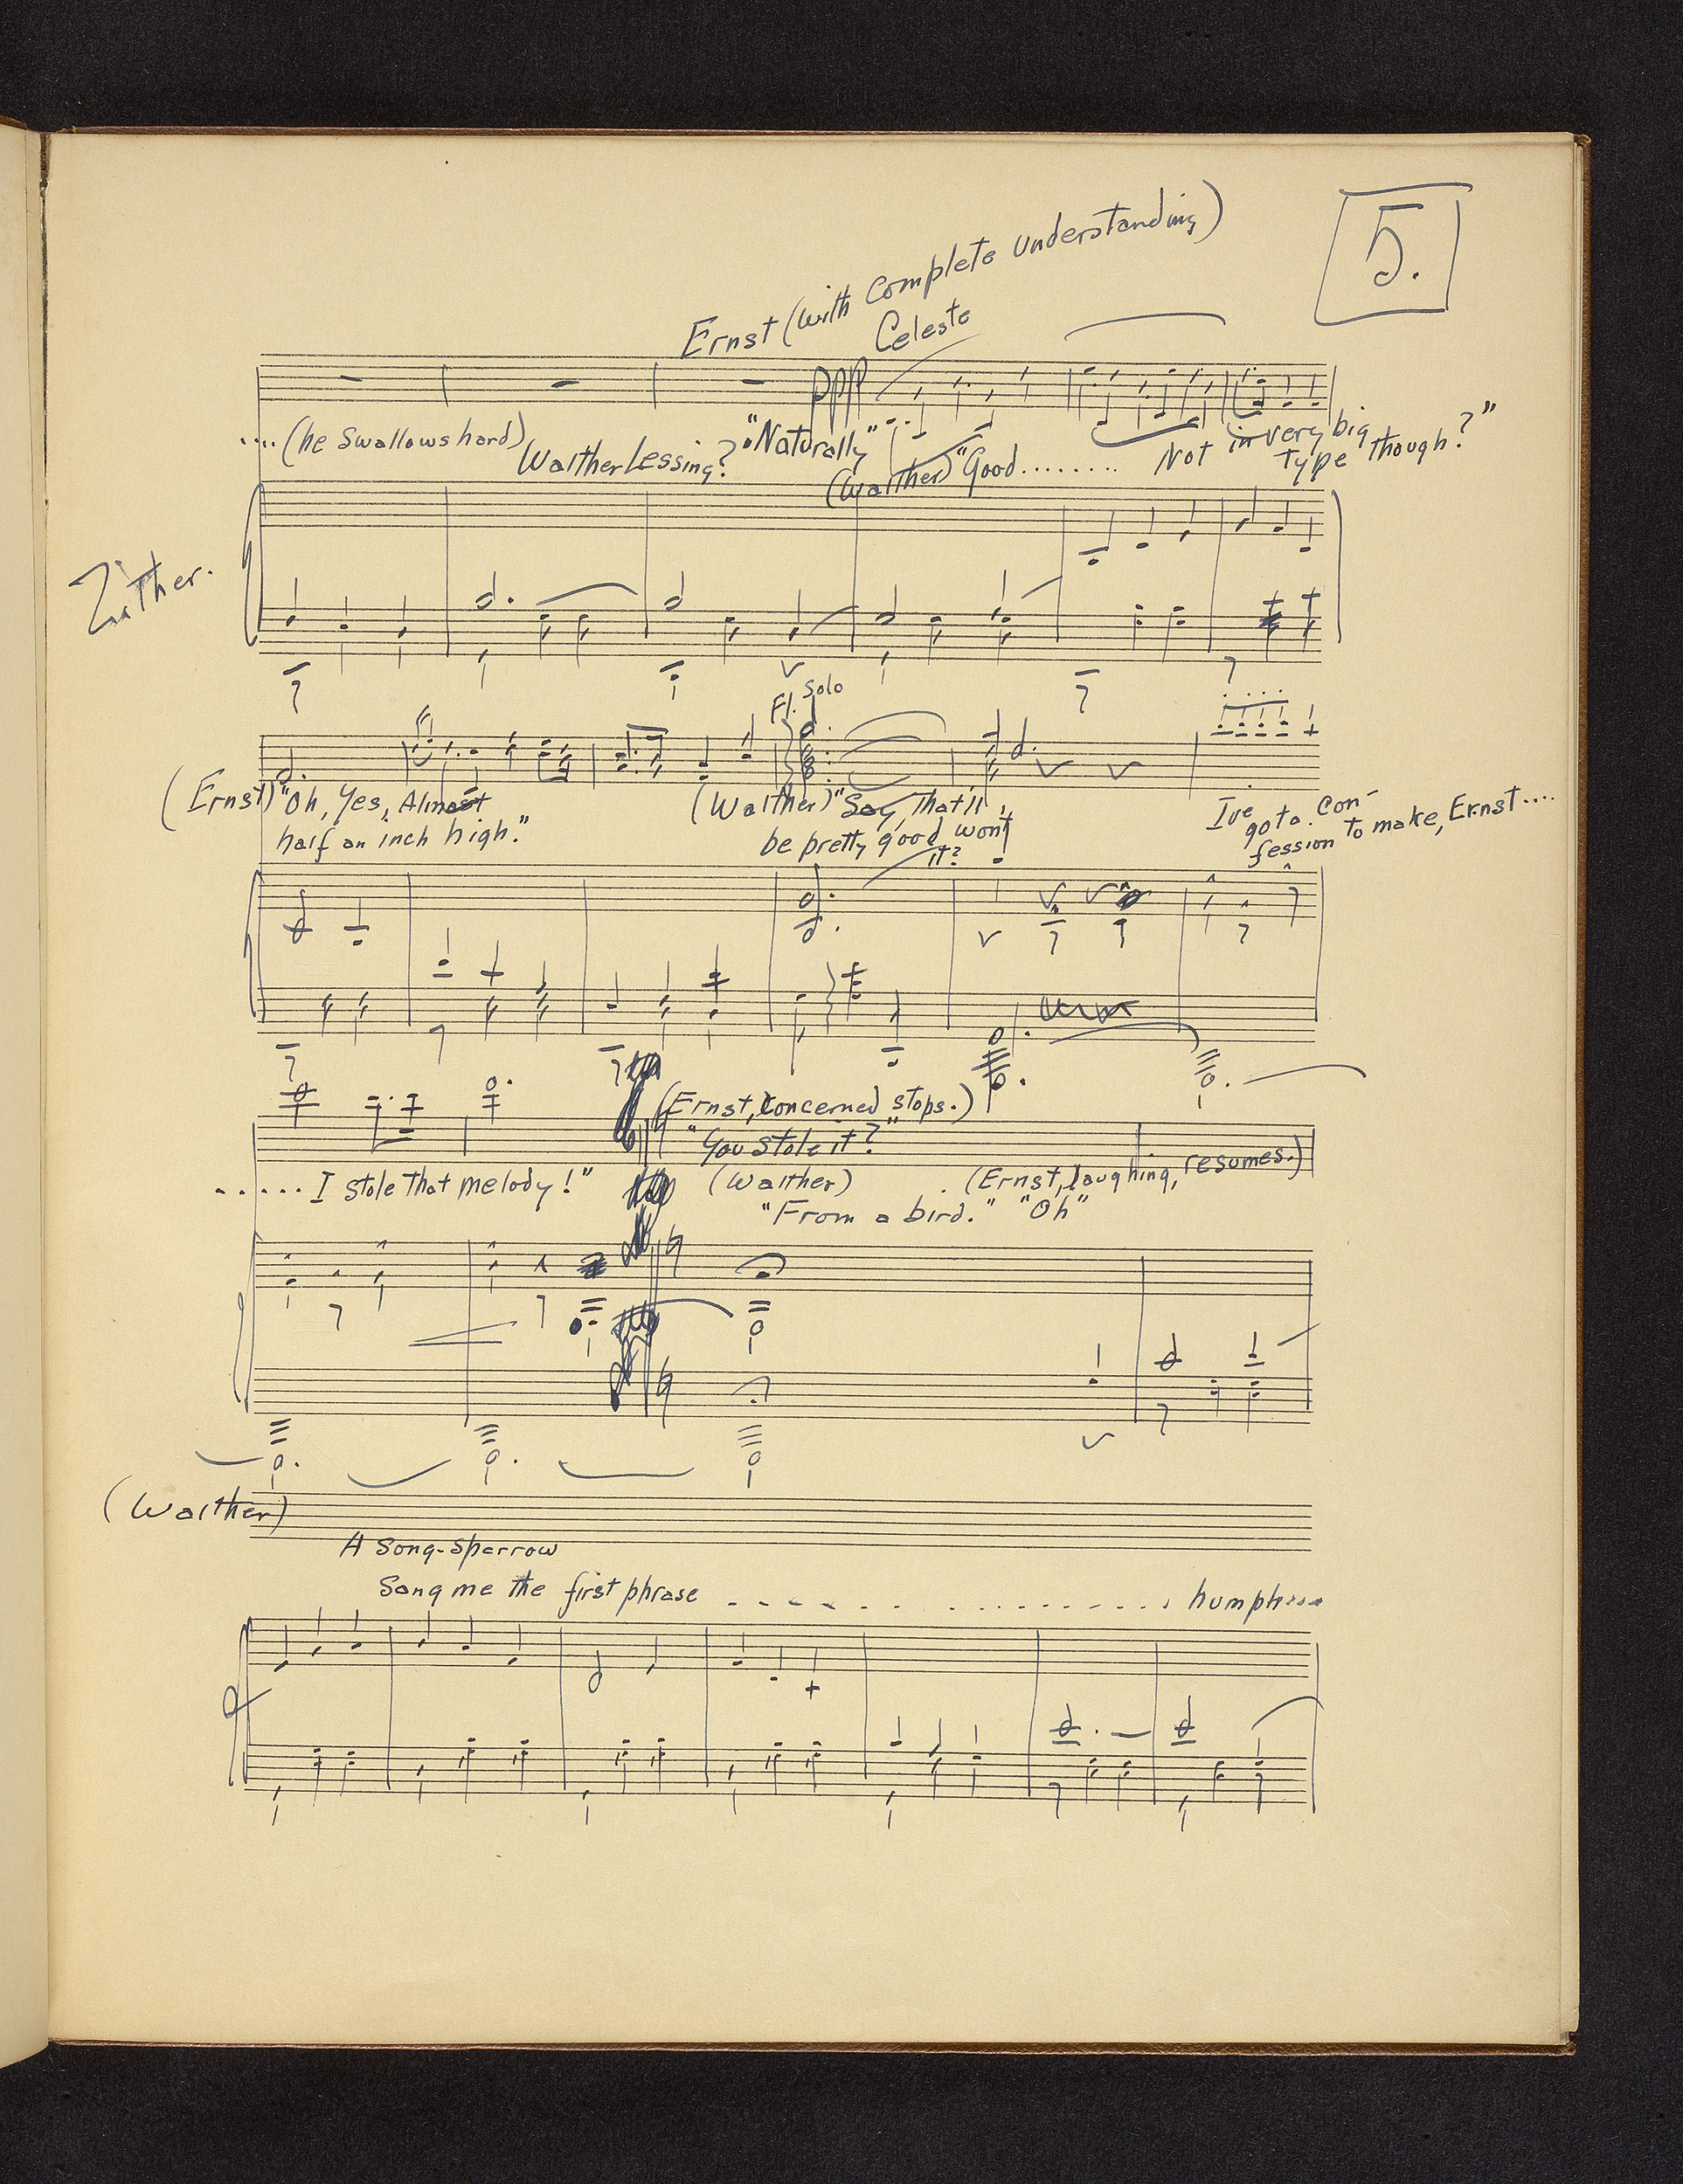 5.
Ernst (with complete understanding)
Celeste
ppp
.... (he swallows hard) Walther Lessing? "Naturally" (Walther) "Good........ Not in very big type though?"
Zither.
Fl. Solo
(Ernst) "Oh, Yes, Almost
half an inch high."
(Walther) "Say, That'll
be pretty good won't
it?
I've
got a con-
fession to make, Ernst....
(Ernst, concerned stops.)
"You stole it?"
...... I stole that melody!"
(Walther)
"From a bird."
(Ernst, laughing, resumes.)
"Oh"
(Walther)
A song-sparrow
Sang me the first phrase - - - - - - ............ humph....